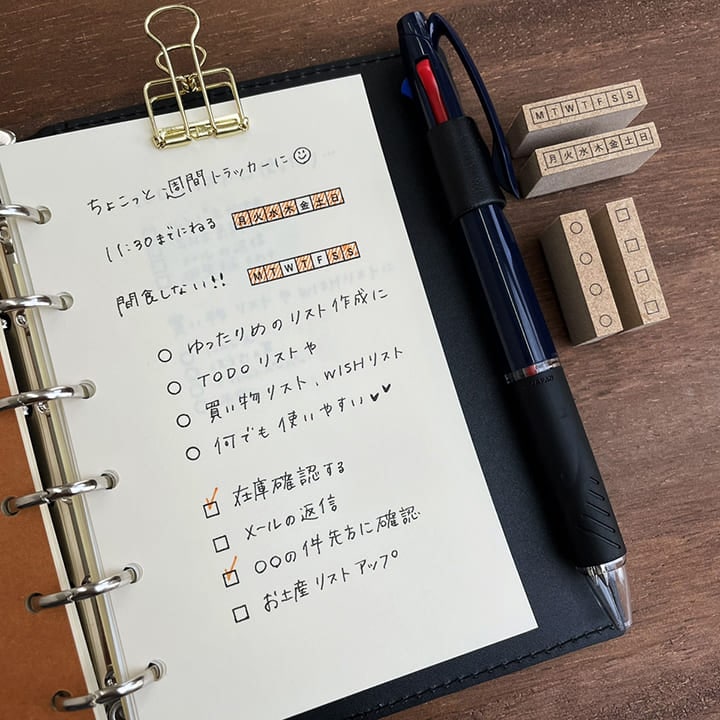 ちょこっと週間トラッカーに
11:30までにねる 月火水木金土日
間食しない!! MTWTFSS
○ ゆったりめのリスト作成に
○ TODOリストや
○ 買い物リスト、WISHリスト
○ 何でも使いやすい
在庫確認する
メールの返信
○○の件先方に確認
お土産リストアップ
MTWTFSS
月火水木金土日
JAPAN